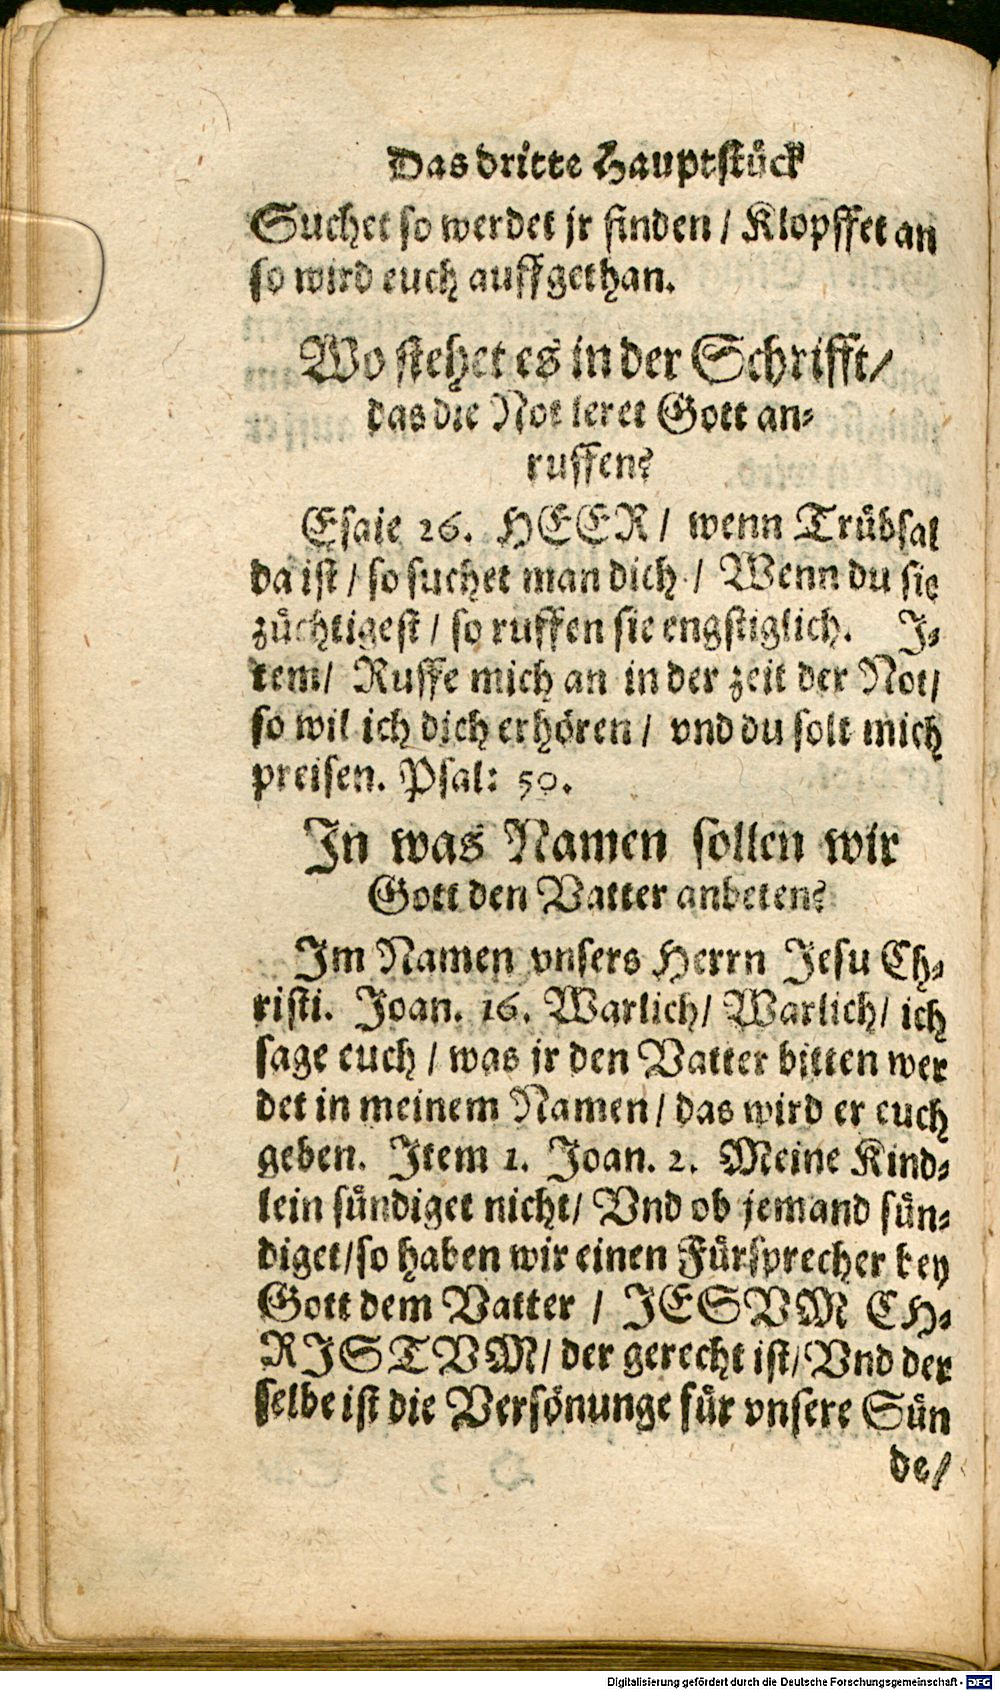 Das dritte Hauptstück
Suchet so werdet jr finden / Klopffet an
so wird euch auffgethan.
Wo stehet es in der Schrifft/
das die Not leret Gott an⸗
ruffen?
Esaie 26. HEER / wenn Trübsal
da ist / so suchet man dich / Wenn du sie
züchtigest / so ruffen sie engstiglich. J⸗
tem/ Ruffe mich an in der zeit der Not/
so wil ich dich erhören / vnd du solt mich
preisen. Psal: 50.
In was Namen sollen wir
Gott den Vatter anbeten?
Im Namen vnsers Herrn Jesu Ch⸗
risti. Joan. 16. Warlich/ Warlich/ ich
sage euch / was jr den Vatter bitten wer
det in meinem Namen / das wird er euch
geben. Item 1. Joan. 2. Meine Kind⸗
lein sündiget nicht/ Vnd ob jemand sün⸗
diget/so haben wir einen Fürsprecher bey
Gott dem Vatter / JESVM CH⸗
RISTVM/ der gerecht ist/ Vnd der
selbe ist die Versönunge für vnsere Sün
de/
Digitalisierung gefördert durch die Deutsche Forschungsgemeinschaft - DFG